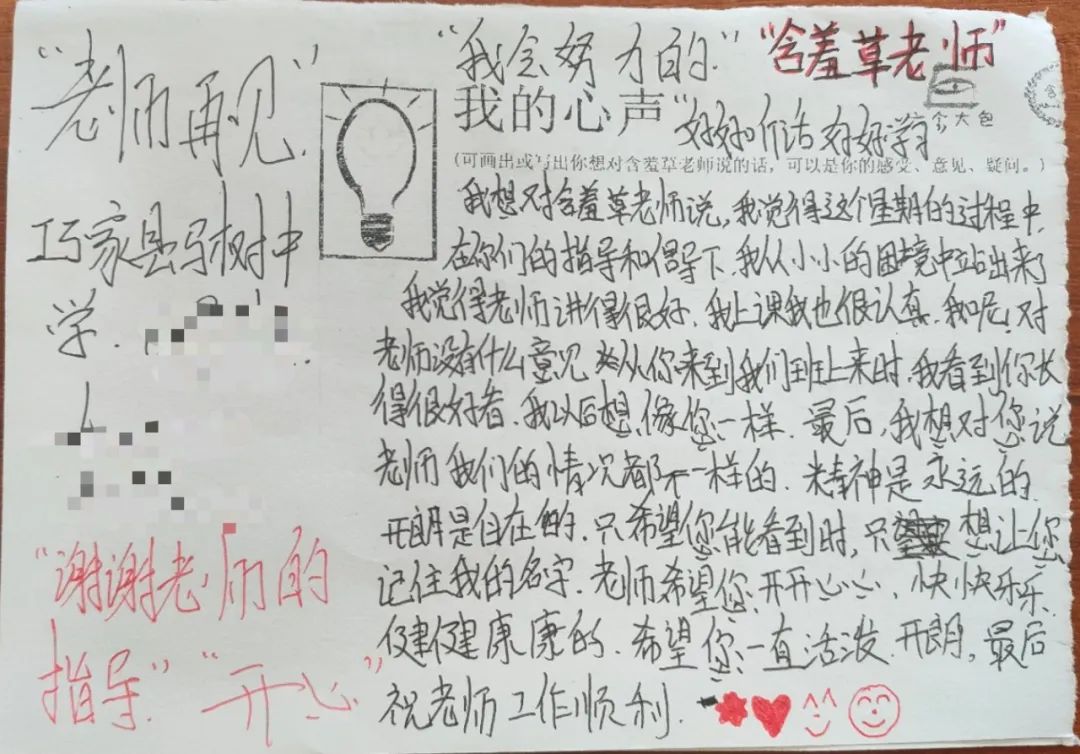 "老师再见"
巧家县马树中
学.
"谢谢老师的
指导""开心"
"我会努力的"
"含羞草老师"
我的心声
"好好听话 好好学习"
个大包
(可画出或写出你想对含羞草老师说的话，可以是你的感受、意见、疑问。)
我想对含羞草老师说，我觉得这个星期的过程中.
在你们的指导和倡导下.我从小小的困境中站出来了
我觉得老师讲得很好.我上课我也很认真.我呢！对
老师没有什么意见 从你来到我们班上来时.我看到你长
得很好看.我以后想像您一样.最后，我想对您说
老师 我们的情况都不一样的.精神是永远的.
开朗是自在的.只希望您能看到时，只想让您
记住我的名字.老师希望您.开开心心、快快乐乐、
健健康康的.希望您一直活泼.开朗，最后
祝老师工作顺利.